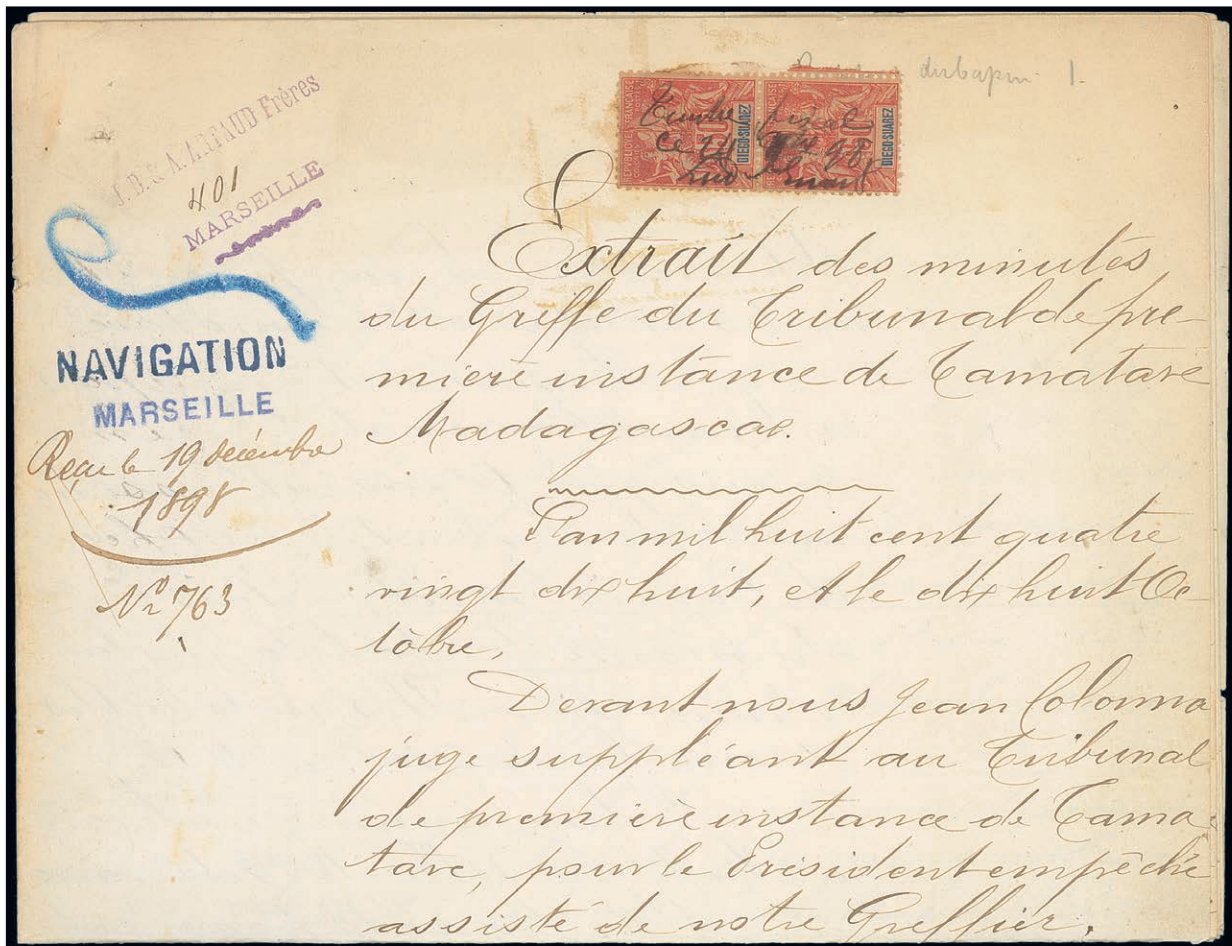 J.B. & A. ARTAUD Frères
401
MARSEILLE
NAVIGATION
MARSEILLE
Reçu le 19 décembre
1898
No 763
1.
RÉPUBLIQUE FRANÇAISE
DIEGO-SUAREZ
DIEGO-SUAREZ
Timbre fiscal
ce 14 98
Extrait des minutes
du Greffe du Tribunal de pre-
mière instance de Tamatave
Madagascar.
L'an mil huit cent quatre
vingt dix huit, et le dix huit Oc-
tobre,
Devant nous Jean Colonna
juge suppléant au Tribunal
de première instance de Tama-
tave, pour le Président empêché
assisté de notre Greffier,